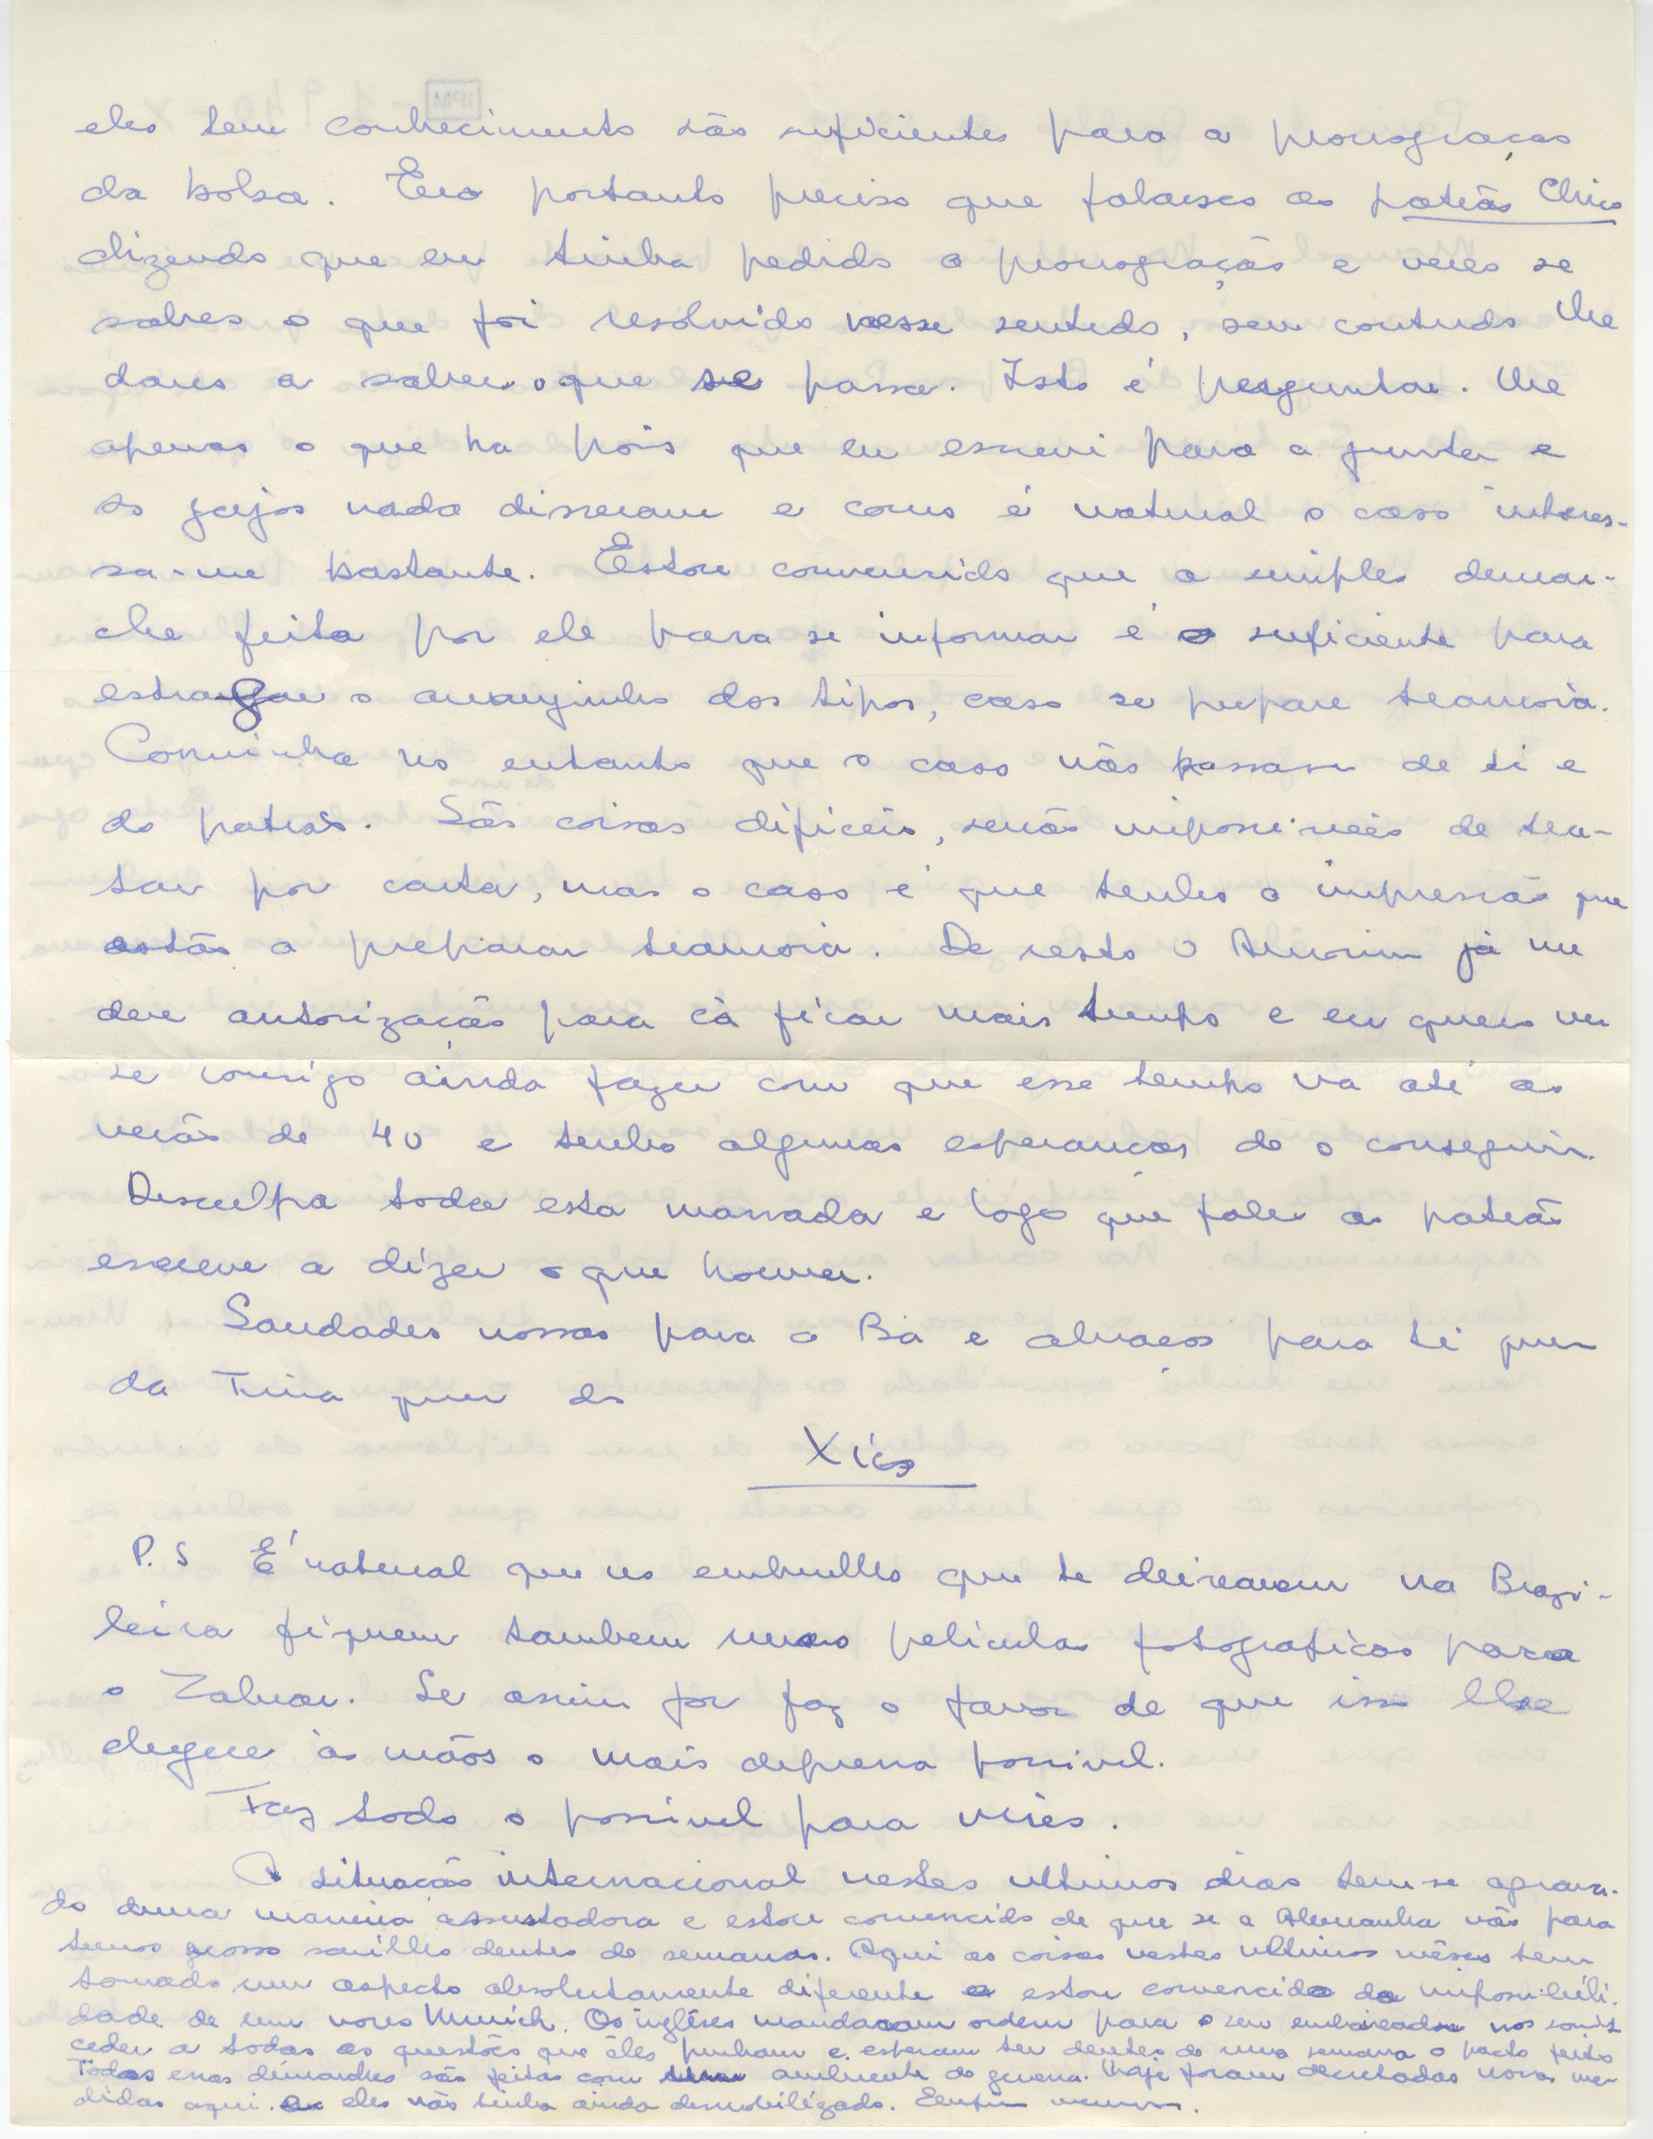 eles tem conhecimento são suficientes para a prorrogração
da bolsa. Era portanto preciso que falasses ao patrão Chico
dizendo que eu tinha pedido a prorrogração e veres se
sabes o que foi resolvido nesse sentido, sem contudo lhe
dares a saber o que se passa. Isto é perguntar-lhe
apenas o que ha pois que eu escrevi para a junta e
os gajos nada disseram e como é natural o caso interes-
sa-me bastante. Estou convencido que a simples demar-
che feita por ele para se informar é o suficiente para
estragar o arranjinho dos tipos, caso se prepare tramoia.
Convinha no entanto que o caso não passasse de ti e
do patrão. São coisas dificeis, senão impossiveis de tra-
tar por carta, mas o caso é que tenho a impressão que
estão a preparar tramoia. De resto o Amorim já me
deu autorização para cá ficar mais tempo e eu quero ver
se consigo ainda fazer com que esse tempo va até ao
verão de 40 e tenho algumas esperanças de o conseguir.
Desculpa toda esta massada e logo que fales ao patrão
escreve a dizer o que houver.
Saudades nossas para a Bia e abraços para ti quer
da Tina quer do
Xico
P.S É natural que no embrulho que te deixaram na Brazi-
leira fiquem tambem umas peliculas fotograficas para
o Zaluar. Se assim for faz o favor de que isso lhe
chegue ás mãos o mais depressa possivel.
Faz todo o possivel para vires.
A situação internacional nestes ultimos dias tem-se agrava-
do duma maneira assustadora e estou convencido de que se a Alemanha não para
temos grosso sarilho dentro de semanas. Aqui as coisas nestes ultimos mêses tem
tomado um aspecto absolutamente diferente e estou convencido da impossibili-
dade de um novo Munich. Os inglêses mandaram ordem para o seu embaixador nos soviets
ceder a todas as questões que êles punham e esperam ter dentro de uma semana o pacto feito
Todas essas démarches são feitas com ambiente de guerra. Hoje foram decretadas novas me-
didas aqui. eles não tinha ainda desmobilizado.